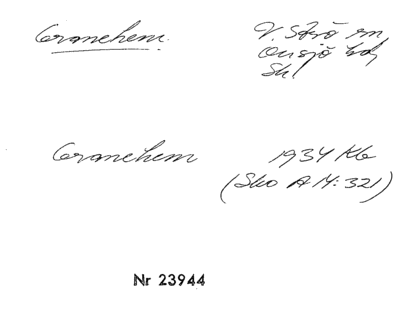 Granehem.
V. Strö sn,
Onsjö hd,
Sk.
Granehem
1934 Kb
(Sko A M: 321)
Nr 23944